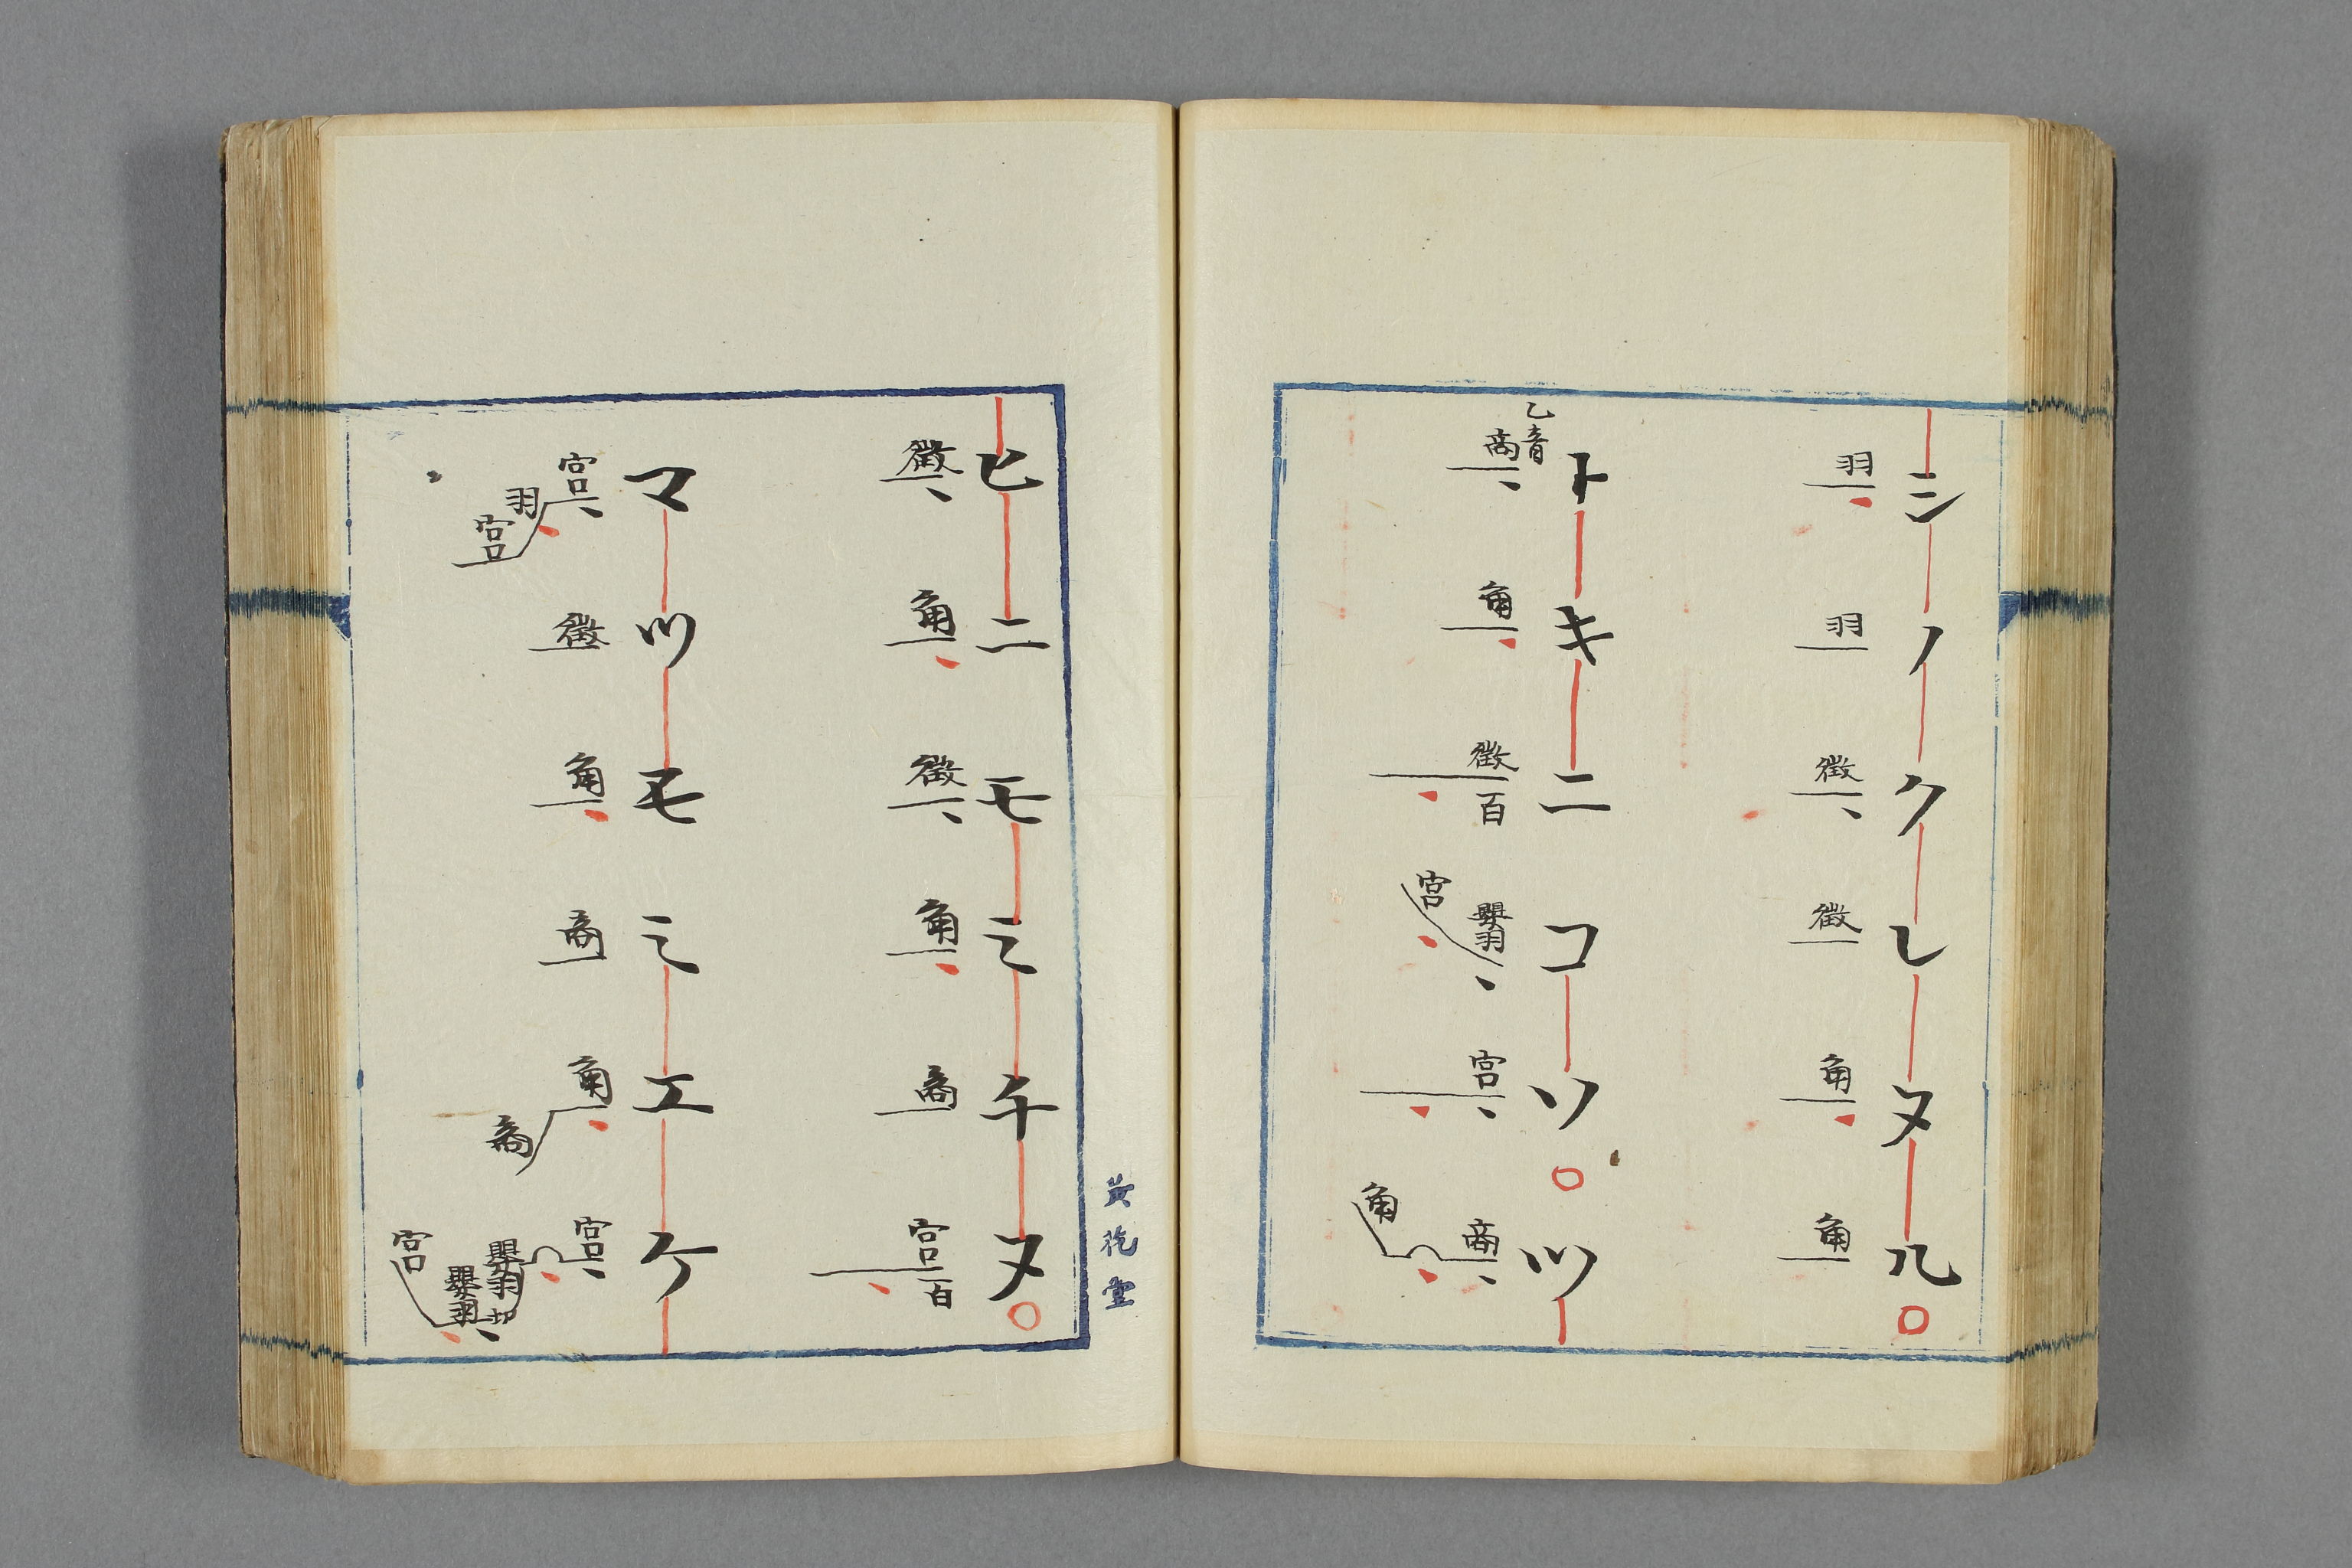 シノクレヌル
羽 羽 徴 徴 角 角
トキニコソツ
乙音
商 角 徴 百 嬰羽 宮 宮 商 角
ヒニモミチヌ
徴 角 徴 角 商 宮 百
マツモミエケ
宮 羽 宮 徴 角 商 角 商 宮 嬰羽 嬰羽 宮